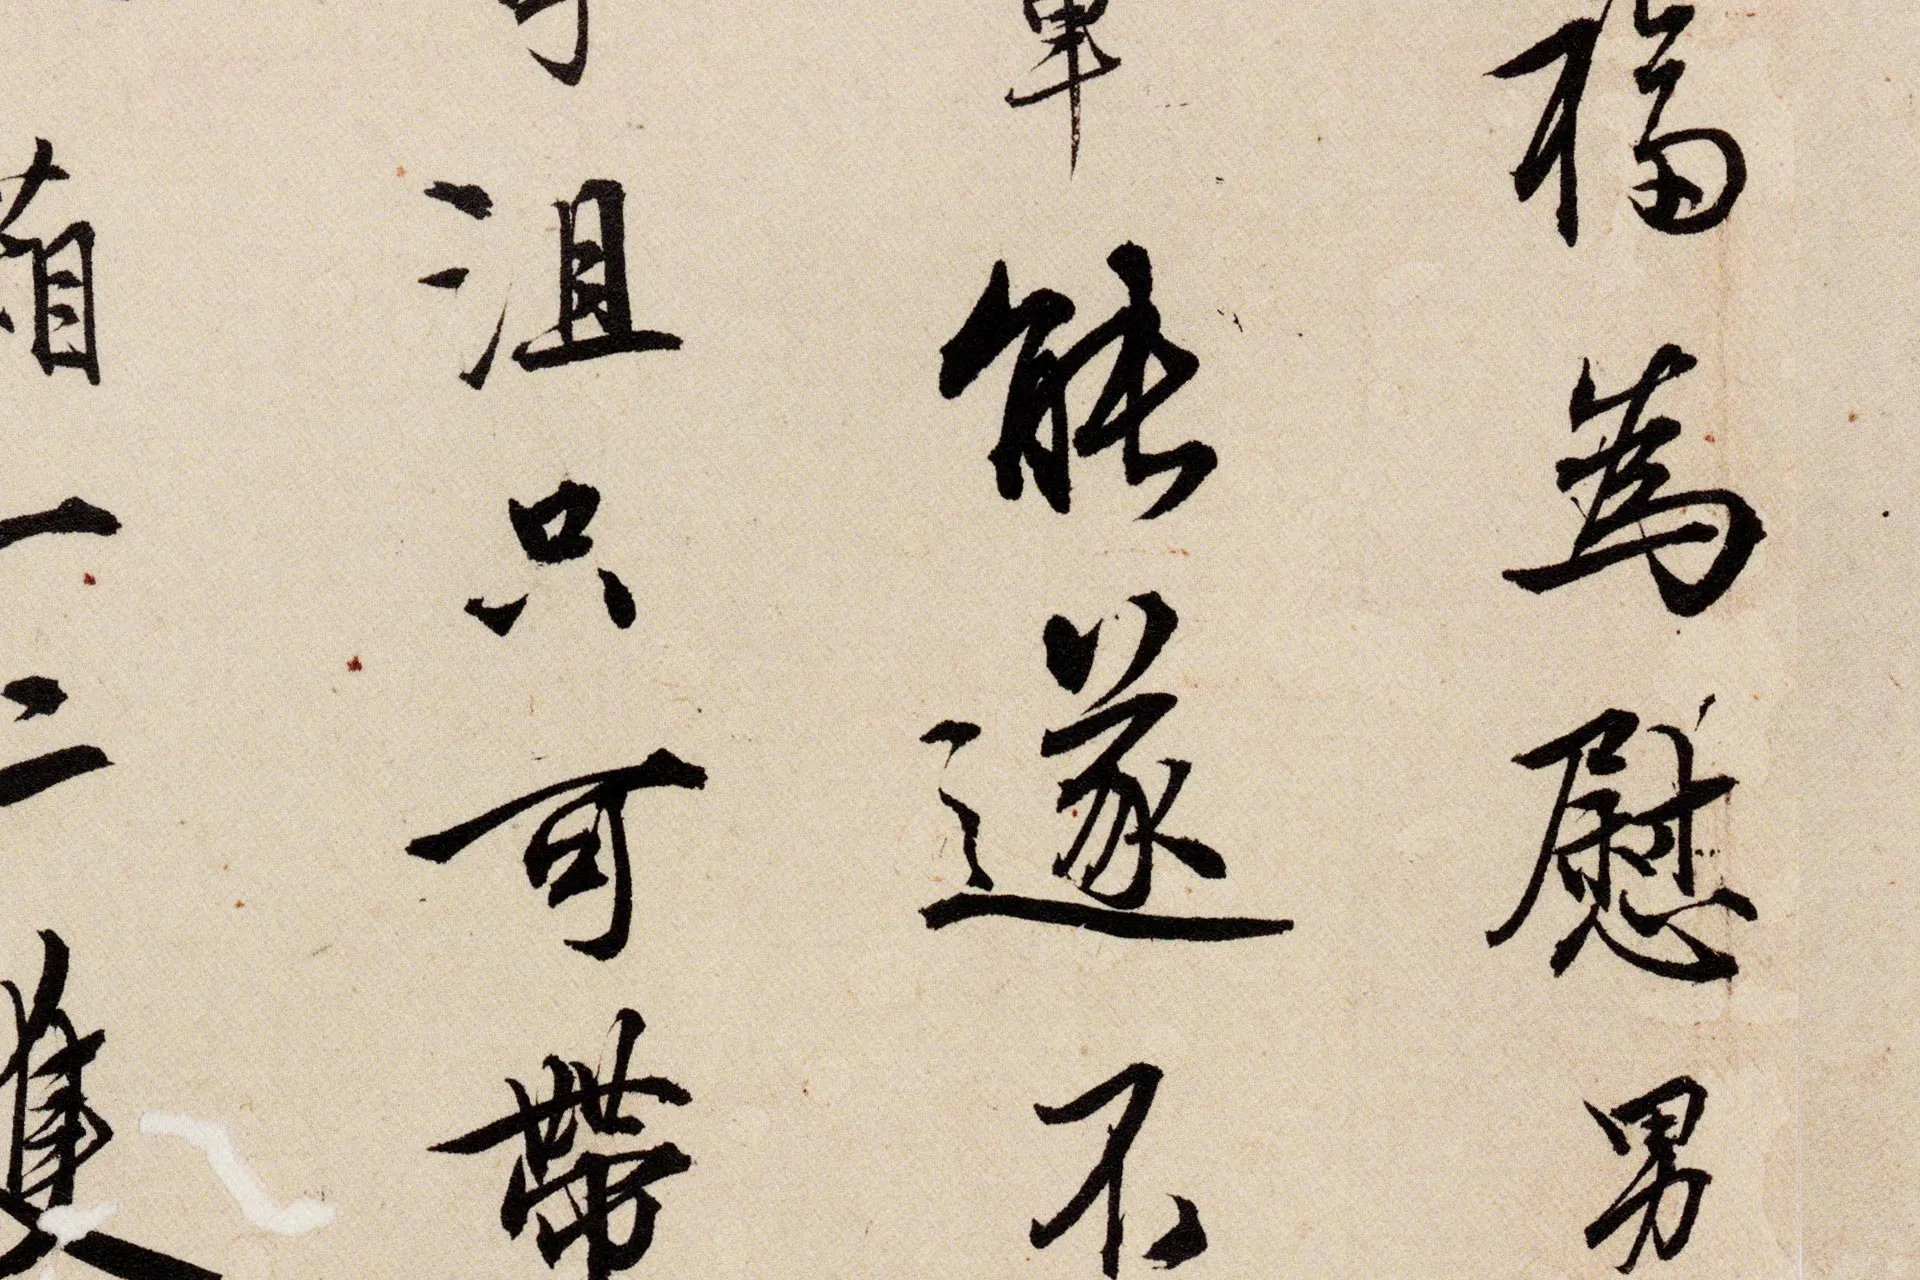 福為慰男
能遂不
沮只可帶
箱一二隻